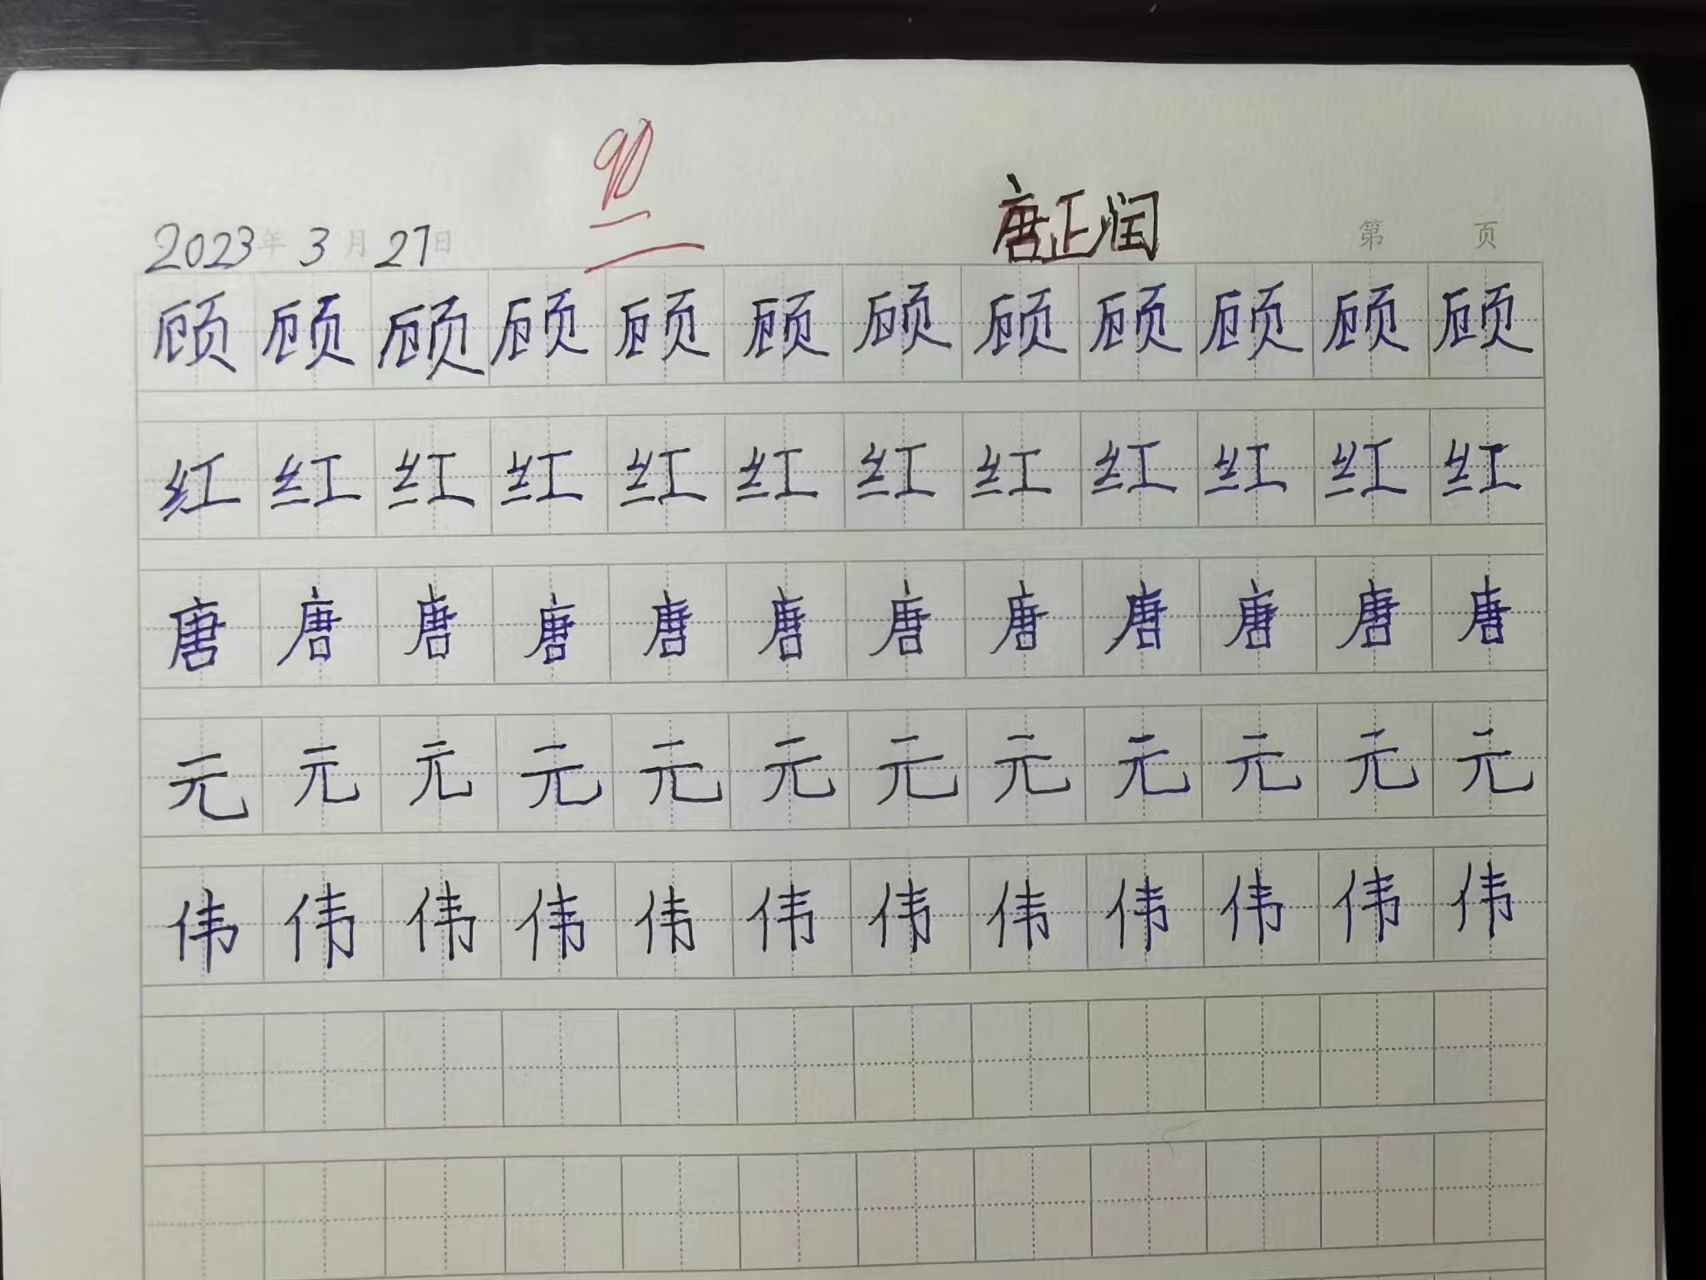 90
唐正润
2023年3月27日
第 页
顾顾顾顾顾顾顾顾顾顾顾顾
红红红红红红红红红红红红
唐唐唐唐唐唐唐唐唐唐唐唐
元元元元元元元元元元元元
伟伟伟伟伟伟伟伟伟伟伟伟